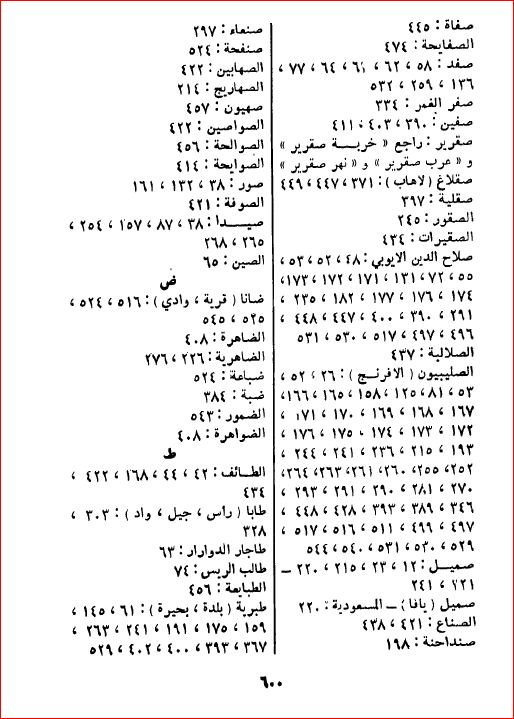 صفاة : ٤٤٥
الصفايحة : ٤٧٤
صفد : ٥٨ ، ٦٢ ، ٦١ ، ٦٤ ، ٧٧ ،
١٣٦ ، ٢٥٩ ، ٥٣٢
صفر الغمر : ٣٣٤
صفين : ٣٩٠ ، ٤٠٣ ، ٤١١
صقرير : راجع « خربة صقرير »
و « عرب صقرير » و « نهر صقرير »
صقلاغ (لاهاب) : ٣٧١ ، ٤٤٧ ، ٤٤٩
صقلية : ٣٩٧
الصقور : ٢٤٥
الصقيرات : ٤٣٤
صلاح الدين الايوبي : ٤٨ ، ٥٢ ، ٥٣ ،
٥٥ ، ٧٢ ، ١٣١ ، ١٧١ ، ١٧٢ ، ١٧٣ ،
١٧٤ ، ١٧٦ ، ١٧٧ ، ١٨٢ ، ٢٣٥ ،
٢٩١ ، ٣٩٠ ، ٤٠٠ ، ٤٤٧ ، ٤٤٨ ،
٤٩٦ ، ٤٩٧ ، ٥١٧ ، ٥٣٠ ، ٥٣١
الصلالبة : ٤٣٧
الصليبيون ( الافرنج ) : ٢٦ ، ٥٢ ،
٥٣ ، ٨١ ، ١٢٥ ، ١٥٨ ، ١٦٥ ، ١٦٦ ،
١٦٧ ، ١٦٨ ، ١٦٩ ، ١٧٠ ، ١٧١ ،
١٧٢ ، ١٧٣ ، ١٧٤ ، ١٧٥ ، ١٧٦ ،
١٩٣ ، ٢١٥ ، ٢٣٦ ، ٢٤١ ، ٢٤٤ ،
٢٥٢ ، ٢٥٥ ، ٢٦٠ ، ٢٦١ ، ٢٦٣ ، ٢٦٤ ،
٢٧٠ ، ٢٨١ ، ٢٩٠ ، ٢٩١ ، ٢٩٣ ،
٣٤٦ ، ٣٨٩ ، ٣٩٣ ، ٤٢٨ ، ٤٤٨ ،
٤٩٧ ، ٤٩٩ ، ٥١١ ، ٥١٦ ، ٥١٧ ،
٥٢٩ ، ٥٣٠ ، ٥٣١ ، ٥٤٠ ، ٥٤٤
صميل : ١٢ ، ٢٣ ، ٢١٥ ، ٢٢٠ –
٢٢١ ، ٢٤١
صميل (يافا) – المسعودية : ٢٢٠
الصناع : ٤٢١ ، ٤٣٨
صنداحنة : ١٩٨
صنعاء : ٢٩٧
صنفحة : ٥٢٤
الصهابين : ٤٢٢
الصهاريج : ٢١٤
صهيون : ٤٥٧
الصواصين : ٤٢٢
الصوالحة : ٤٥٦
الصوايحة : ٤١٤
صور : ٣٨ ، ١٣٢ ، ١٦١
الصوفة : ٤٢١
صيدا : ٣٨ ، ٨٧ ، ١٥٧ ، ٢٥٤ ،
٢٦٥ ، ٢٦٨
الصين : ٦٥
ض
ضانا ( قرية ، وادي ) : ٥١٦ ، ٥٢٤ ،
٥٢٥ ، ٥٤٥
الضاهرة : ٤٠٨
الضاهرية : ٢٢٦ ، ٢٧٦
ضباعة : ٥٢٤
ضبة : ٣٨٤
الضمور : ٥٤٣
الضواهرة : ٤٠٨
ط
الطائف : ٤٢ ، ٤٤ ، ١٦٨ ، ٤٢٢ ،
٤٣٤
طابا ( رأس ، جبل ، واد ) : ٣٠٣ ،
٣٢٨
طاجار الدوادار : ٦٣
طالب الريس : ٧٤
الطبايعة : ٤٥٦
طبرية ( بلدة ، بحيرة ) : ٦١ ، ١٤٥ ،
١٥٩ ، ١٧٥ ، ١٩١ ، ٢٤١ ، ٢٦٣ ،
٣٦٧ ، ٣٩٣ ، ٤٠٠ ، ٤٠٢ ، ٥٢٩
٦٠٠